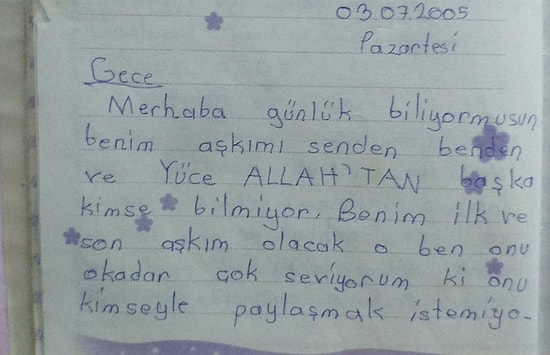 03.07.2005
Pazartesi
Gece
Merhaba günlük biliyormusun
benim aşkımı senden benden
ve Yüce ALLAH'TAN başka
kimse bilmiyor. Benim ilk ve
son aşkım olacak o ben onu
okadar çok seviyorum ki onu
kimseyle paylaşmak istemiyo-